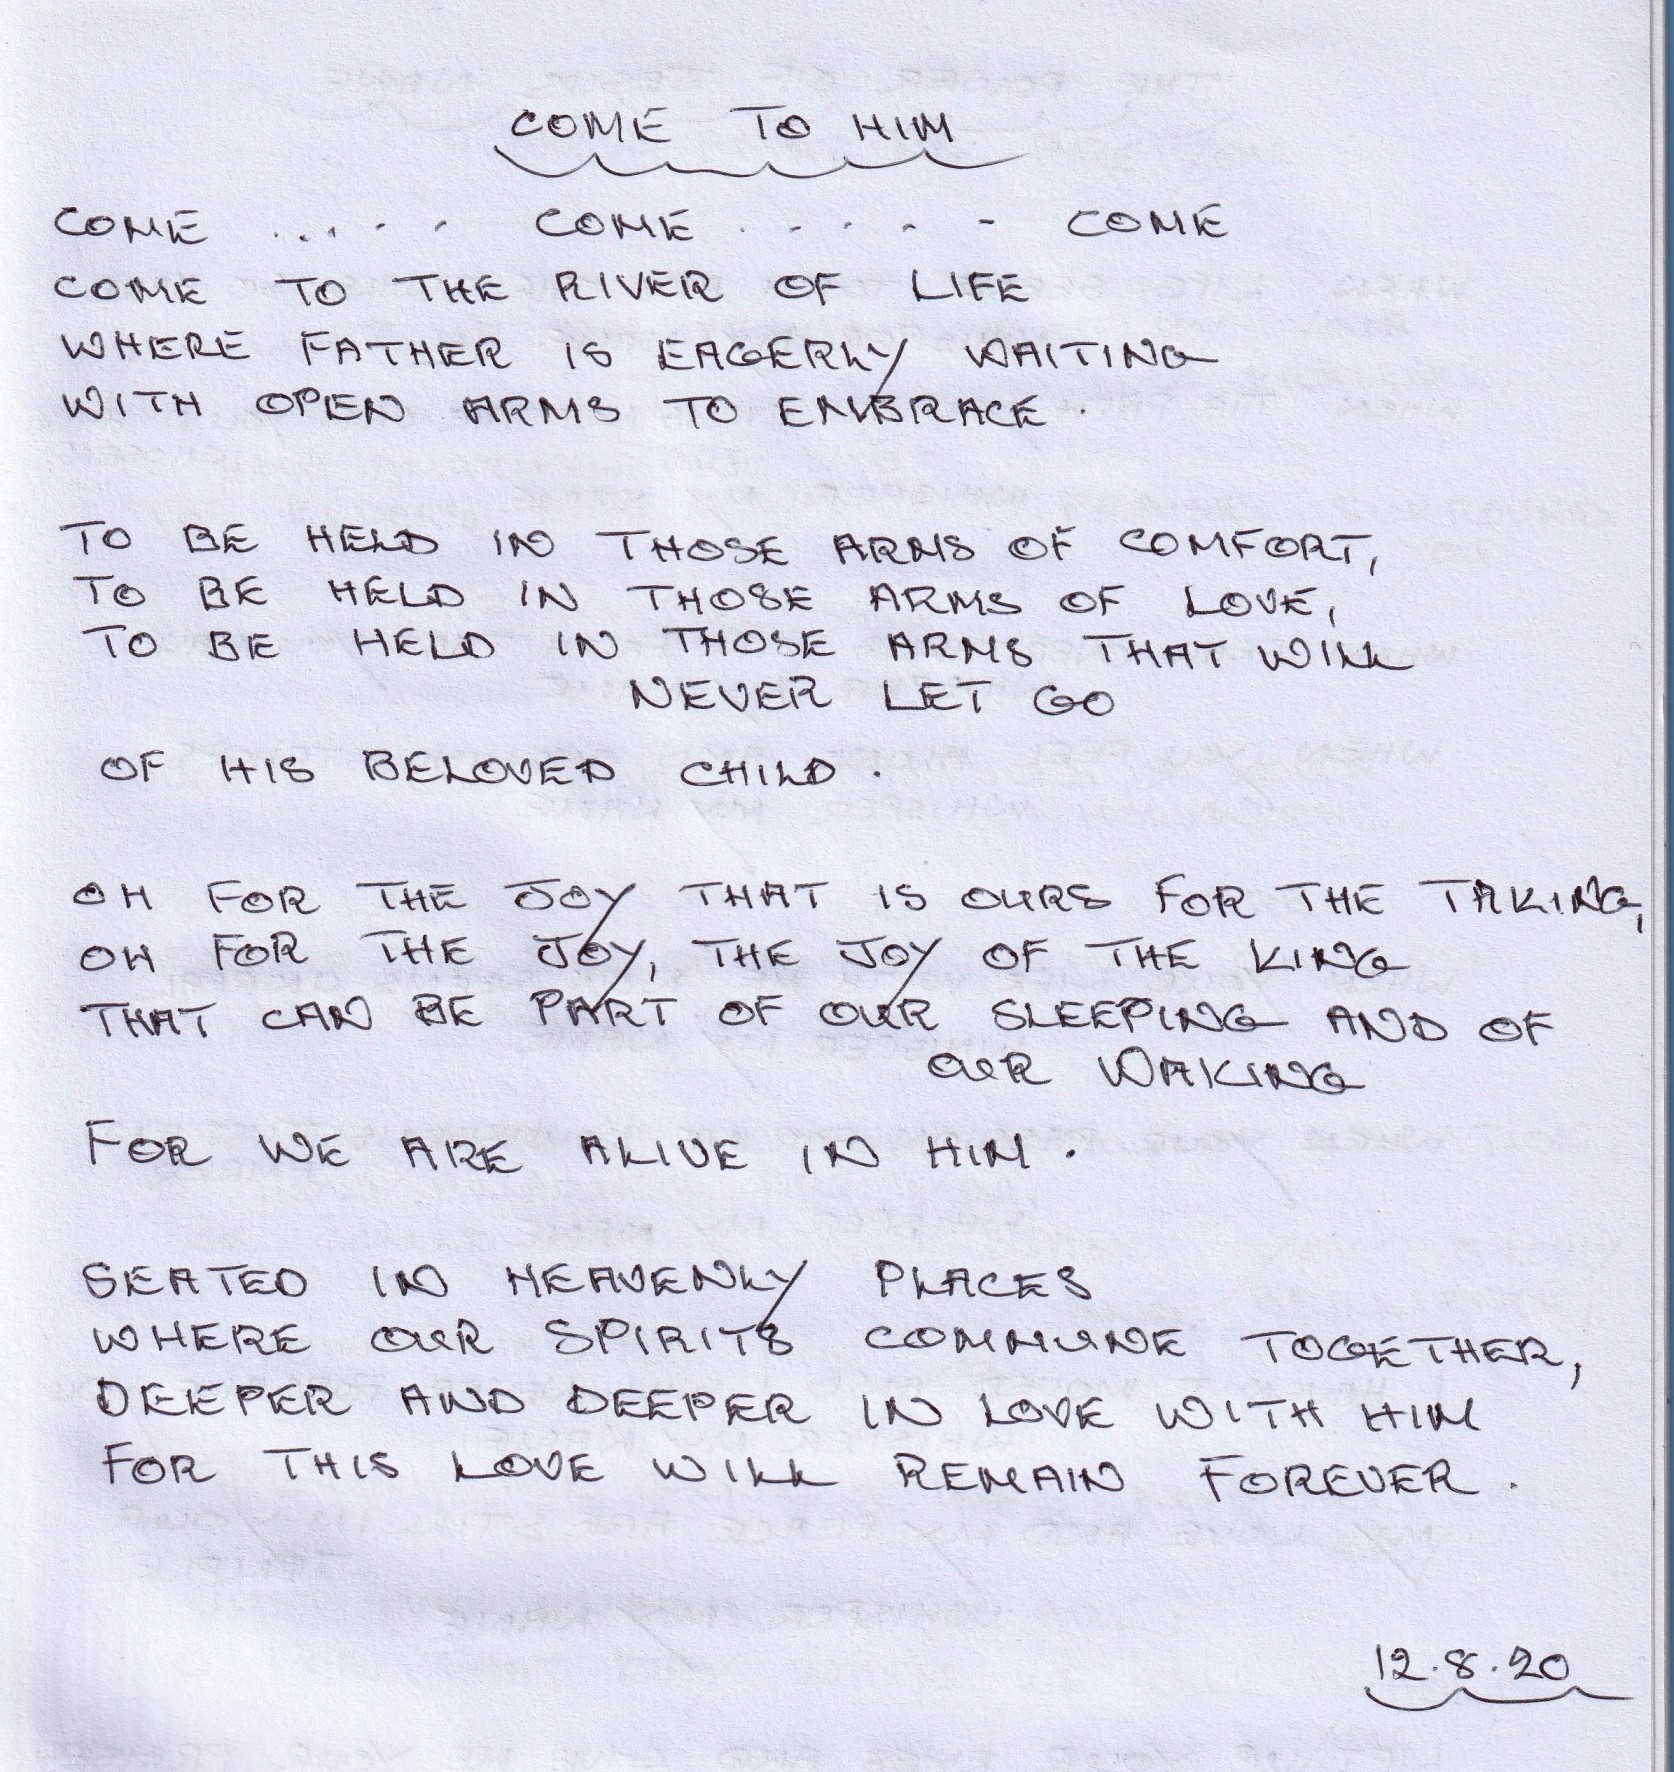 COME TO HIM
COME ..... COME ..... COME
COME TO THE RIVER OF LIFE
WHERE FATHER IS EAGERLY WAITING
WITH OPEN ARMS TO EMBRACE.
TO BE HELD IN THOSE ARMS OF COMFORT,
TO BE HELD IN THOSE ARMS OF LOVE,
TO BE HELD IN THOSE ARMS THAT WILL
NEVER LET GO
OF HIS BELOVED CHILD.
OH FOR THE JOY THAT IS OURS FOR THE TAKING,
OH FOR THE JOY, THE JOY OF THE KING
THAT CAN BE PART OF OUR SLEEPING AND OF
OUR WAKING
FOR WE ARE ALIVE IN HIM.
SEATED IN HEAVENLY PLACES
WHERE OUR SPIRITS COMMUNE TOGETHER,
DEEPER AND DEEPER IN LOVE WITH HIM
FOR THIS LOVE WILL REMAIN FOREVER.
12.8.20